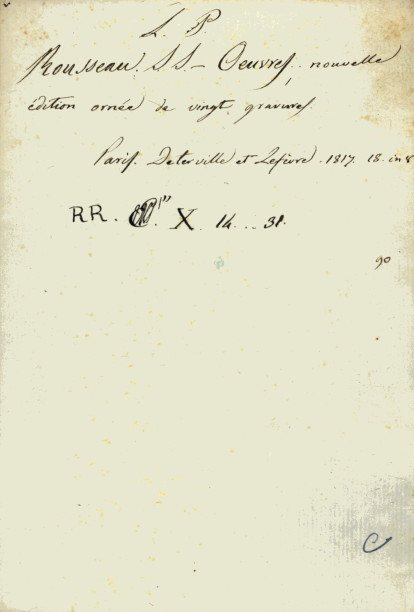 L. P.
Rousseau. J.J. – Oeuvres, nouvelle
édition ornée de vingt gravures.
Paris. Deterville et Lefèvre. 1817. 18. in 8
RR. X. 14 .. 31.
90
C